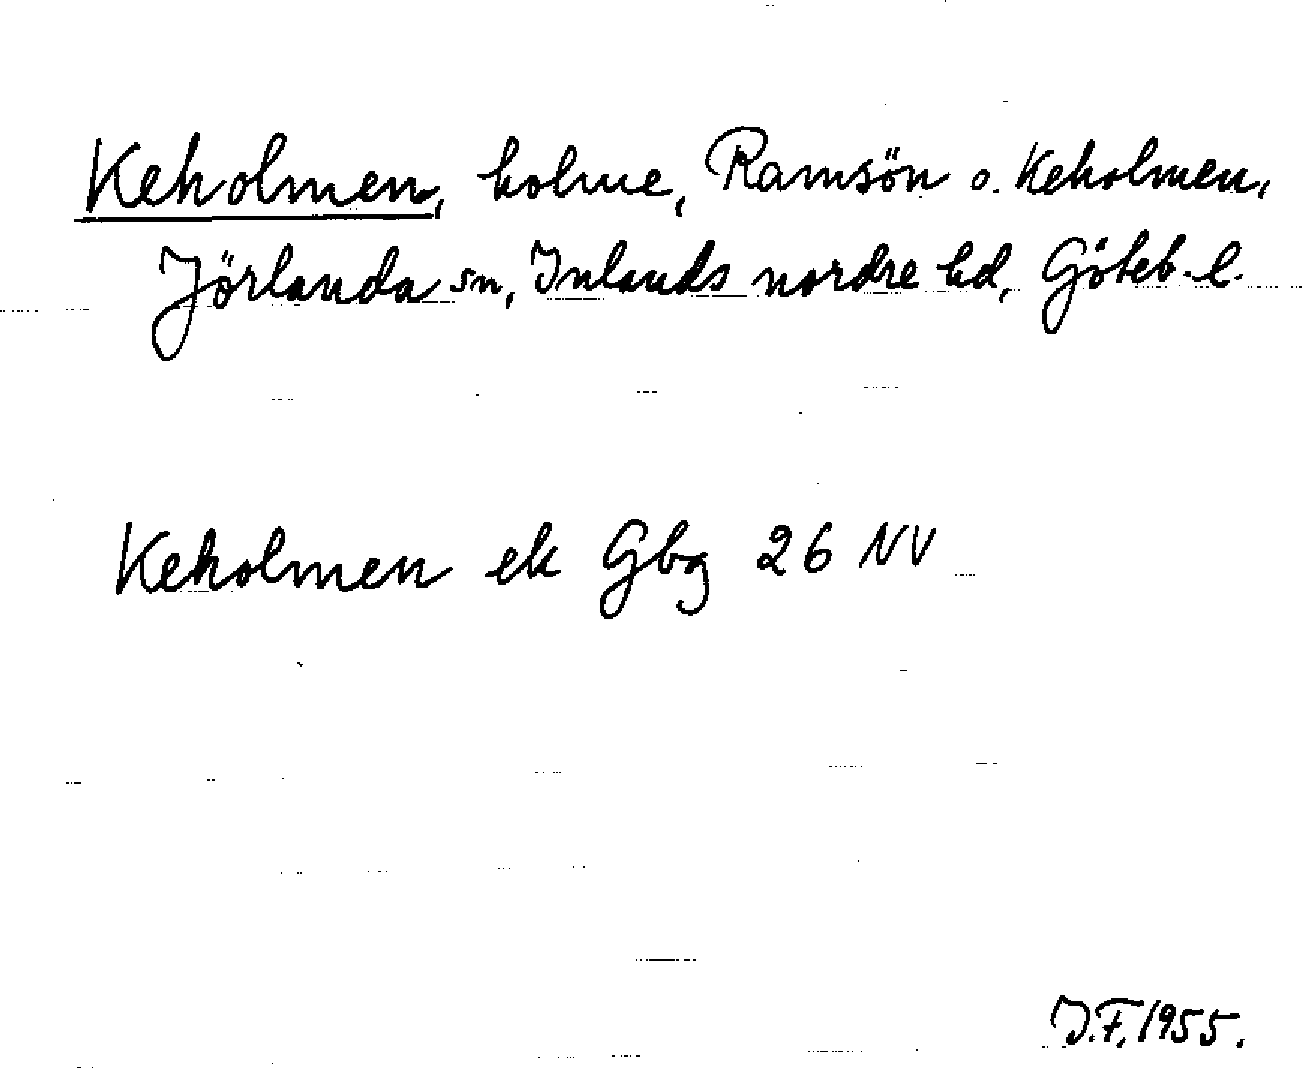 Keholmen, holme, Ramsön o. Keholmen,
Jörlanda sn, Inlands nordre hd, Göteb. l.
Keholmen ek Gbg 26 NV
J.F. 1955.